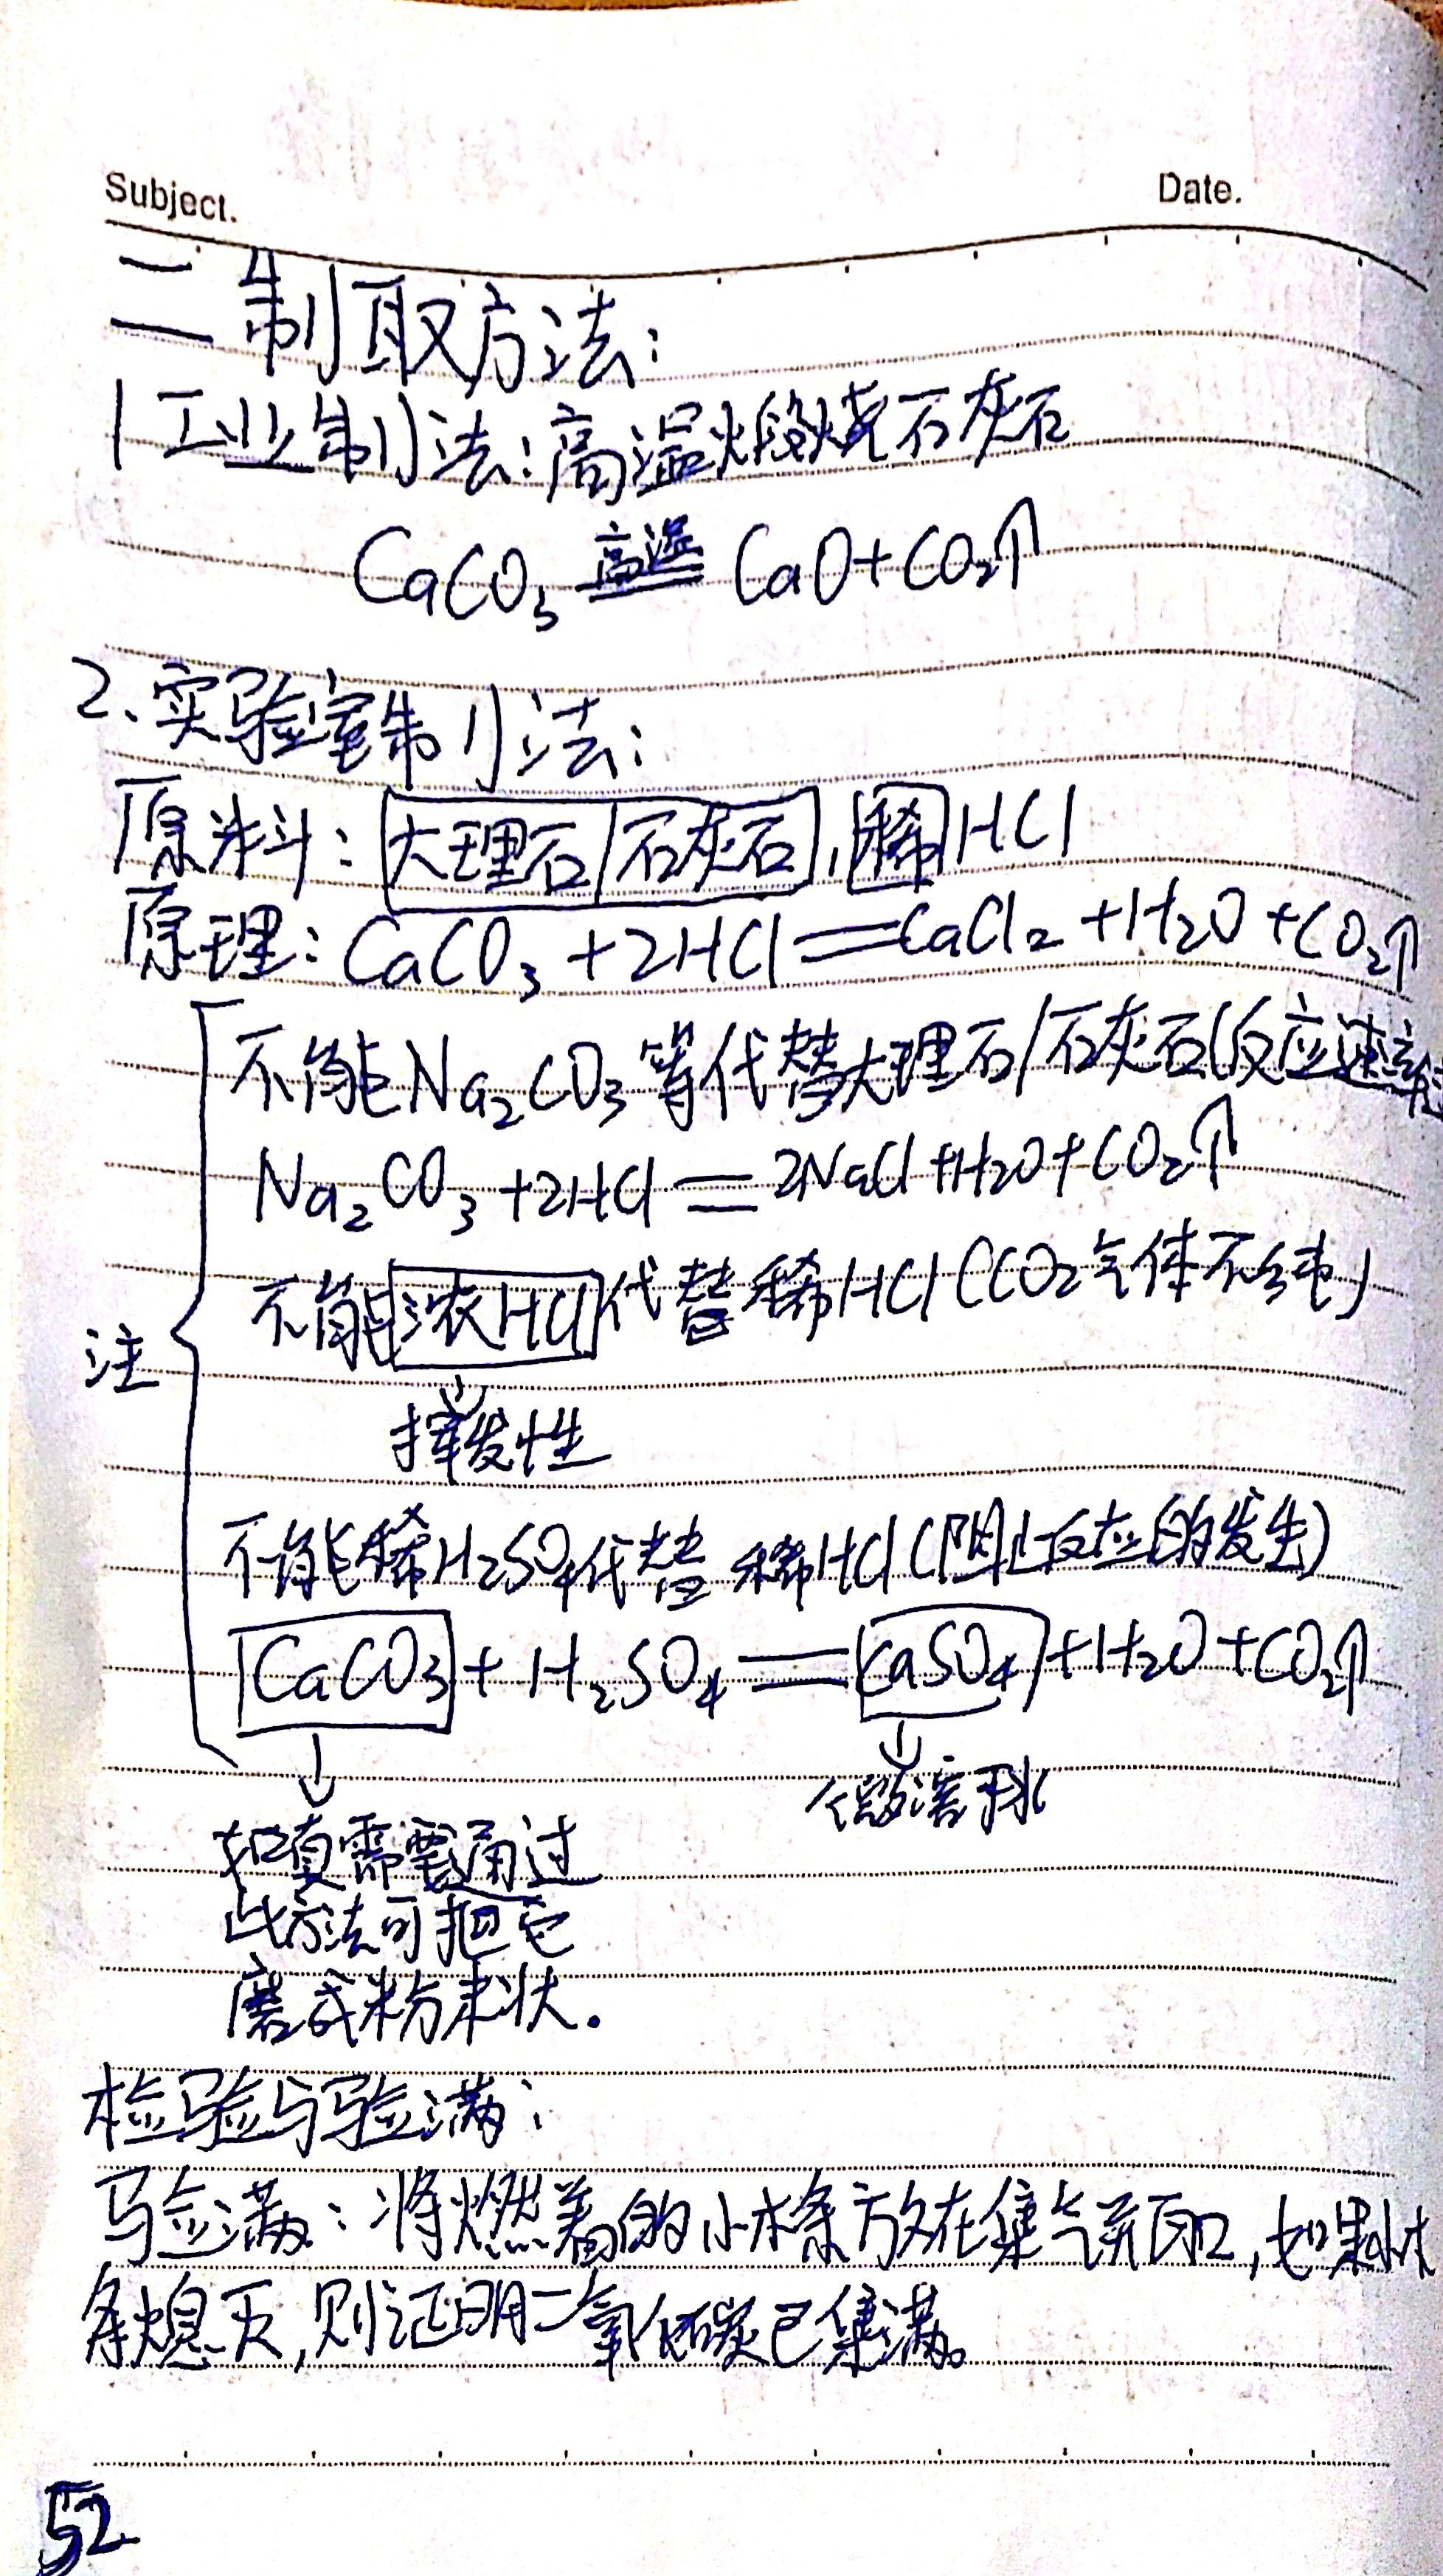 Subject. Date.
二 制取方法:
1 工业制法:高温煅烧石灰石
CaCO₃ 高温 CaO+CO₂↑
2、实验室制法:
原料:大理石/石灰石,稀HCl
原理:CaCO₃+2HCl=CaCl₂+H₂O+CO₂↑
不能Na₂CO₃等代替大理石/石灰石(反应速率
Na₂CO₃+2HCl=2NaCl+H₂O+CO₂↑
不能浓HCl代替稀HCl(CO₂气体不纯)
注
挥发性
不能稀H₂SO₄代替稀HCl(阻止反应的发生)
CaCO₃+H₂SO₄=CaSO₄+H₂O+CO₂↑
微溶于水
如真需要通过
此方法可把它
磨成粉末状.
检验与验满:
验满:将燃着的小木条放在集气瓶口,如果木
条熄灭,则证明二氧化碳已集满。
52